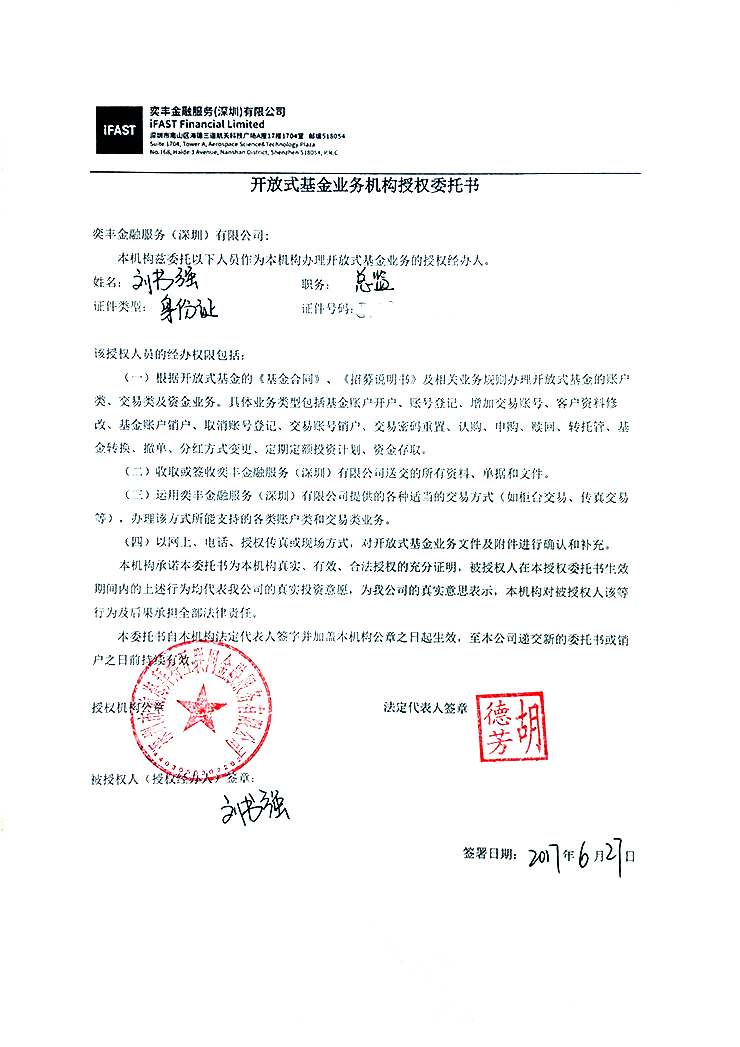 iFAST
奕丰金融服务(深圳)有限公司
iFAST Financial Limited
深圳市南山区海德三道航天科技广场A座17楼1704室 邮编518054
Suite 1704, Tower A, Aerospace Science&Technology Plaza
No.168, Haide 3 Avenue, Nanshan District, Shenzhen 518054, P.R.C
开放式基金业务机构授权委托书
奕丰金融服务（深圳）有限公司：
本机构兹委托以下人员作为本机构办理开放式基金业务的授权经办人。
姓名：刘书强 职务：总监
证件类型：身份证 证件号码：
该授权人员的经办权限包括：
（一）根据开放式基金的《基金合同》、《招募说明书》及相关业务规则办理开放式基金的账户
类、交易类及资金业务。具体业务类型包括基金账户开户、账号登记、增加交易账号、客户资料修
改、基金账户销户、取消账号登记、交易账号销户、交易密码重置、认购、申购、赎回、转托管、基
金转换、撤单、分红方式变更、定期定额投资计划、资金存取。
（二）收取或签收奕丰金融服务（深圳）有限公司送交的所有资料、单据和文件。
（三）运用奕丰金融服务（深圳）有限公司提供的各种适当的交易方式（如柜台交易、传真交易
等），办理该方式所能支持的各类账户类和交易类业务。
（四）以网上、电话、授权传真或现场方式，对开放式基金业务文件及附件进行确认和补充。
本机构承诺本委托书为本机构真实、有效、合法授权的充分证明，被授权人在本授权委托书生效
期间内的上述行为均代表我公司的真实投资意愿，为我公司的真实意思表示，本机构对被授权人该等
行为及后果承担全部法律责任。
本委托书自本机构法定代表人签字并加盖本机构公章之日起生效，至本公司递交新的委托书或销
户之日前持续有效。
授权机构公章 法定代表人签章
胡德芳
被授权人（授权经办人）签章：
刘书强
签署日期：2017年6月27日